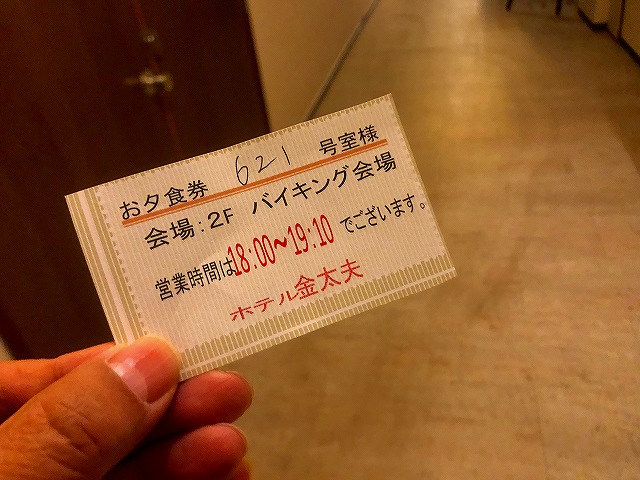 お夕食券 621 号室様
会場:2F バイキング会場
営業時間は18:00~19:10でございます。
ホテル金太夫